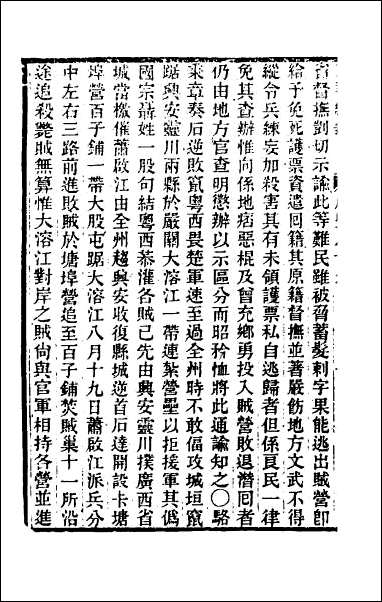 官督撫剴切示諭此等難民雖被脅蓄髮刺字果能逃出賊營卽
給予免死護票資遣回籍其原籍督撫並著嚴飭地方文武不得
縱令兵練妄加殺害其有未領護票私自逃歸者但係良民一律
免其查辦惟向係地痞惡棍及曾充鄉勇投入賊營敗退潛回者
仍由地方官查明懲辦以示區分而昭矜恤將此通諭知之〇駱
秉章奏石逆敗竄粵西畏楚軍速至過全州時不敢偪攻城垣竄
踞興安靈川兩縣於嚴關大溶江一帶連紮營壘以拒援軍其僞
國宗諱姓一股句結粵西蔘灌各賊已先由興安靈川撲廣西省
城當檄催蕭啟江由全州趨興安收復縣城逆首石達開設卡塘
埠營百子鋪一帶大股屯踞大溶江八月十九日蕭啟江派兵分
中左右三路前進敗賊於塘埠營追至百子鋪焚賊巢十一所沿
途追殺斃賊無算惟大溶江對岸之賊尙與官軍相持各營並進